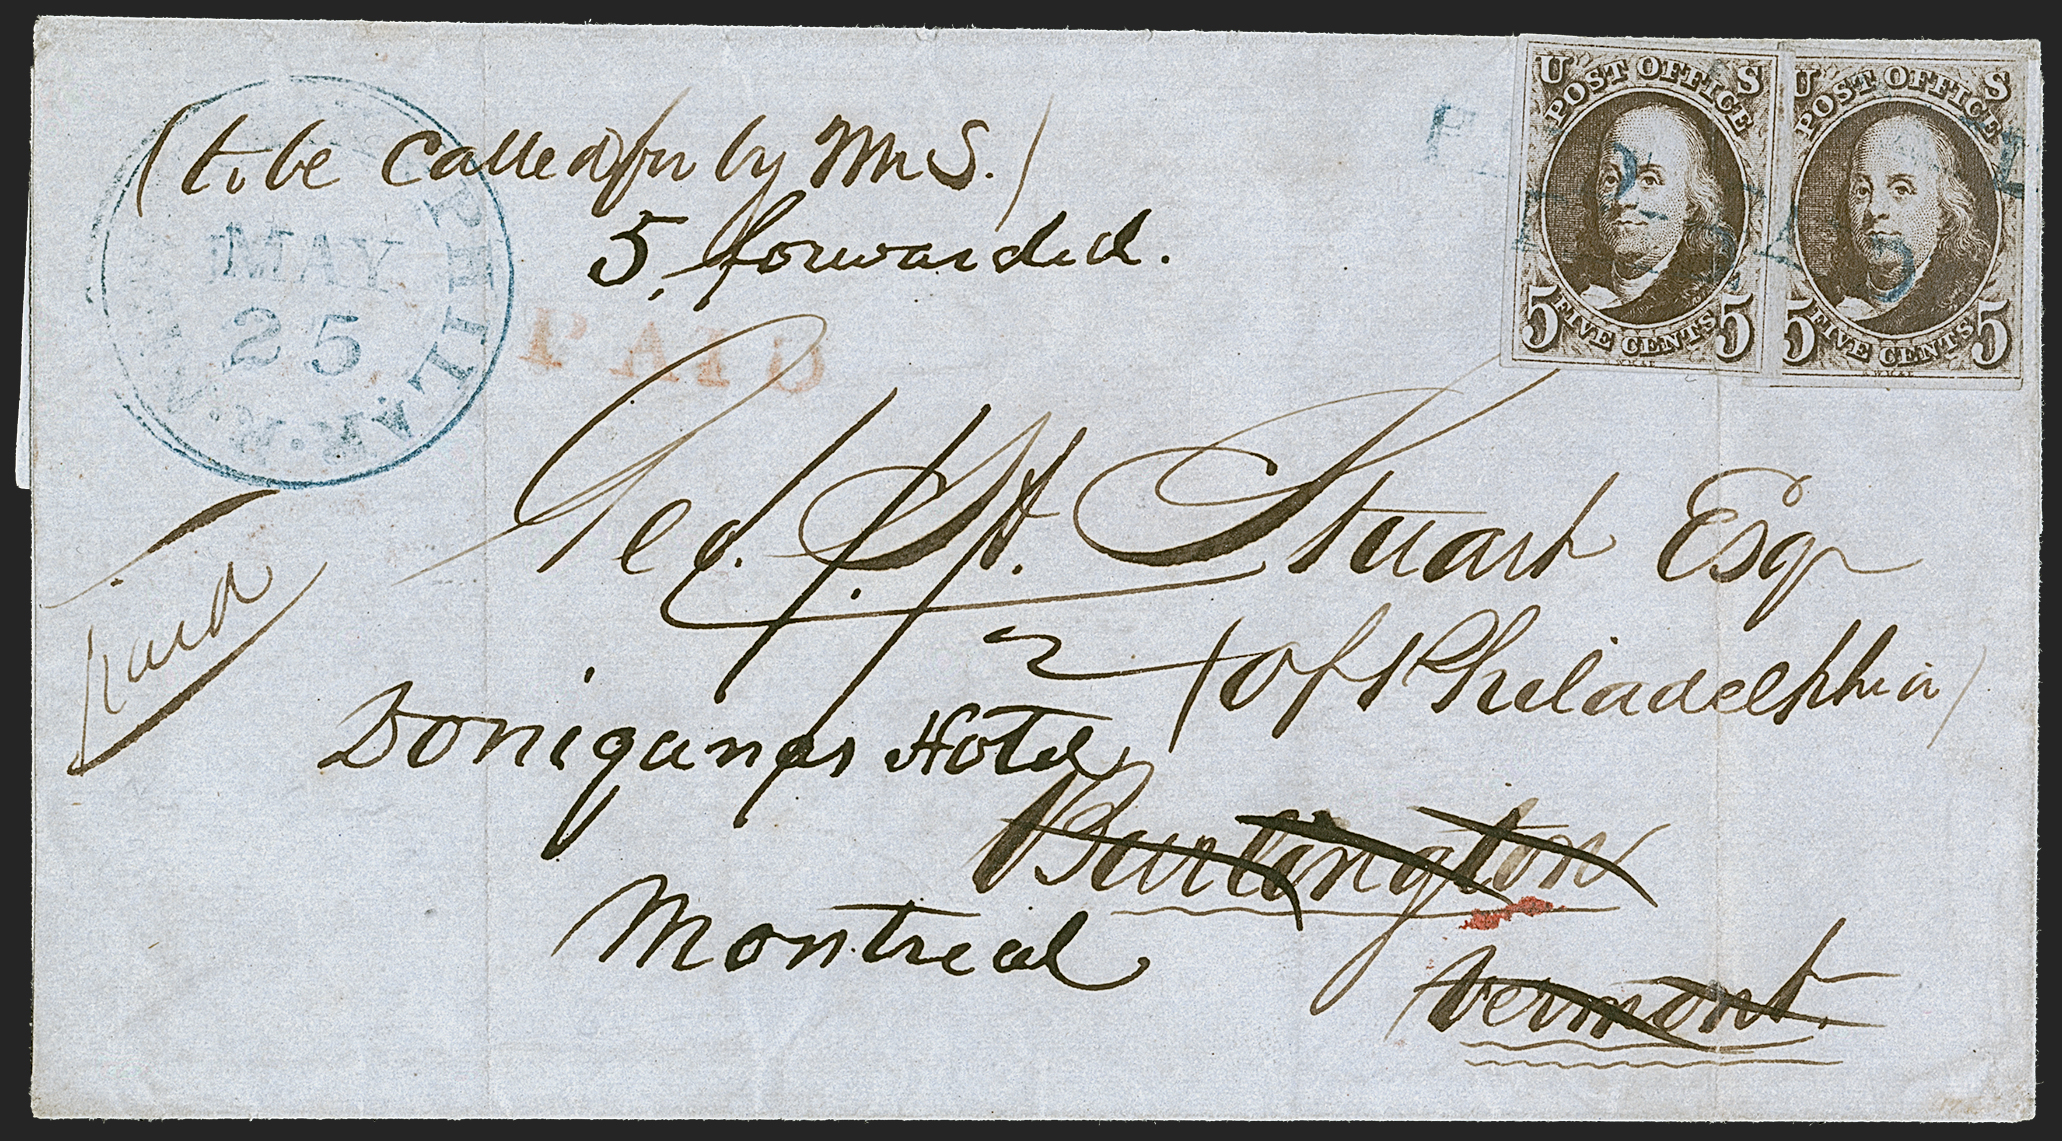 U S
POST OFFICE
5 5
FIVE CENTS
U S
POST OFFICE
5 5
FIVE CENTS
PAID
(to be called for by Mr S.)
5, forwarded.
PHILADA. R. R.
MAY
25
PAID
Geo. H. Stuart Esqr
(of Philadelphia)
paid
Doniganas Hotel
Burlington
Montreal
Vermont.